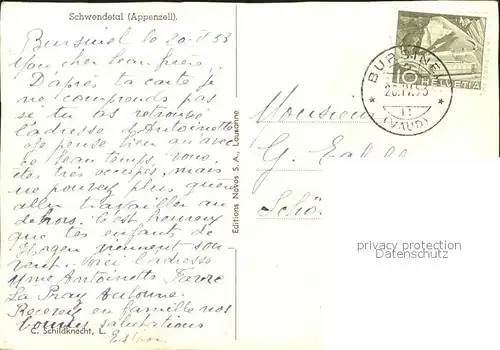 Schwendetal (Appenzell).
Bursinel le 20 53
Mon cher beau frère,
D'après ta carte je
ne comprends pas
si tu as retrouvé
l'adresse d'Antoinette
Je pense bien qu'avec
ce beau temps, vous
êtes très occupés, mais
ne pouvez plus
aller travailler au
dehors. C'est heureux
que tes enfants de
Hagen viennent sou-
vent. Voici l'adresse
Mme Antoinette Favre
La Praz
Recevez en famille nos
bonnes salutations
C. Schildknecht, L.
Editions Novos S. A., Lausanne
BURSINEL
53
(VAUD)
10 HELVETIA
Monsieur
G.
Schö
privacy protection
watermark